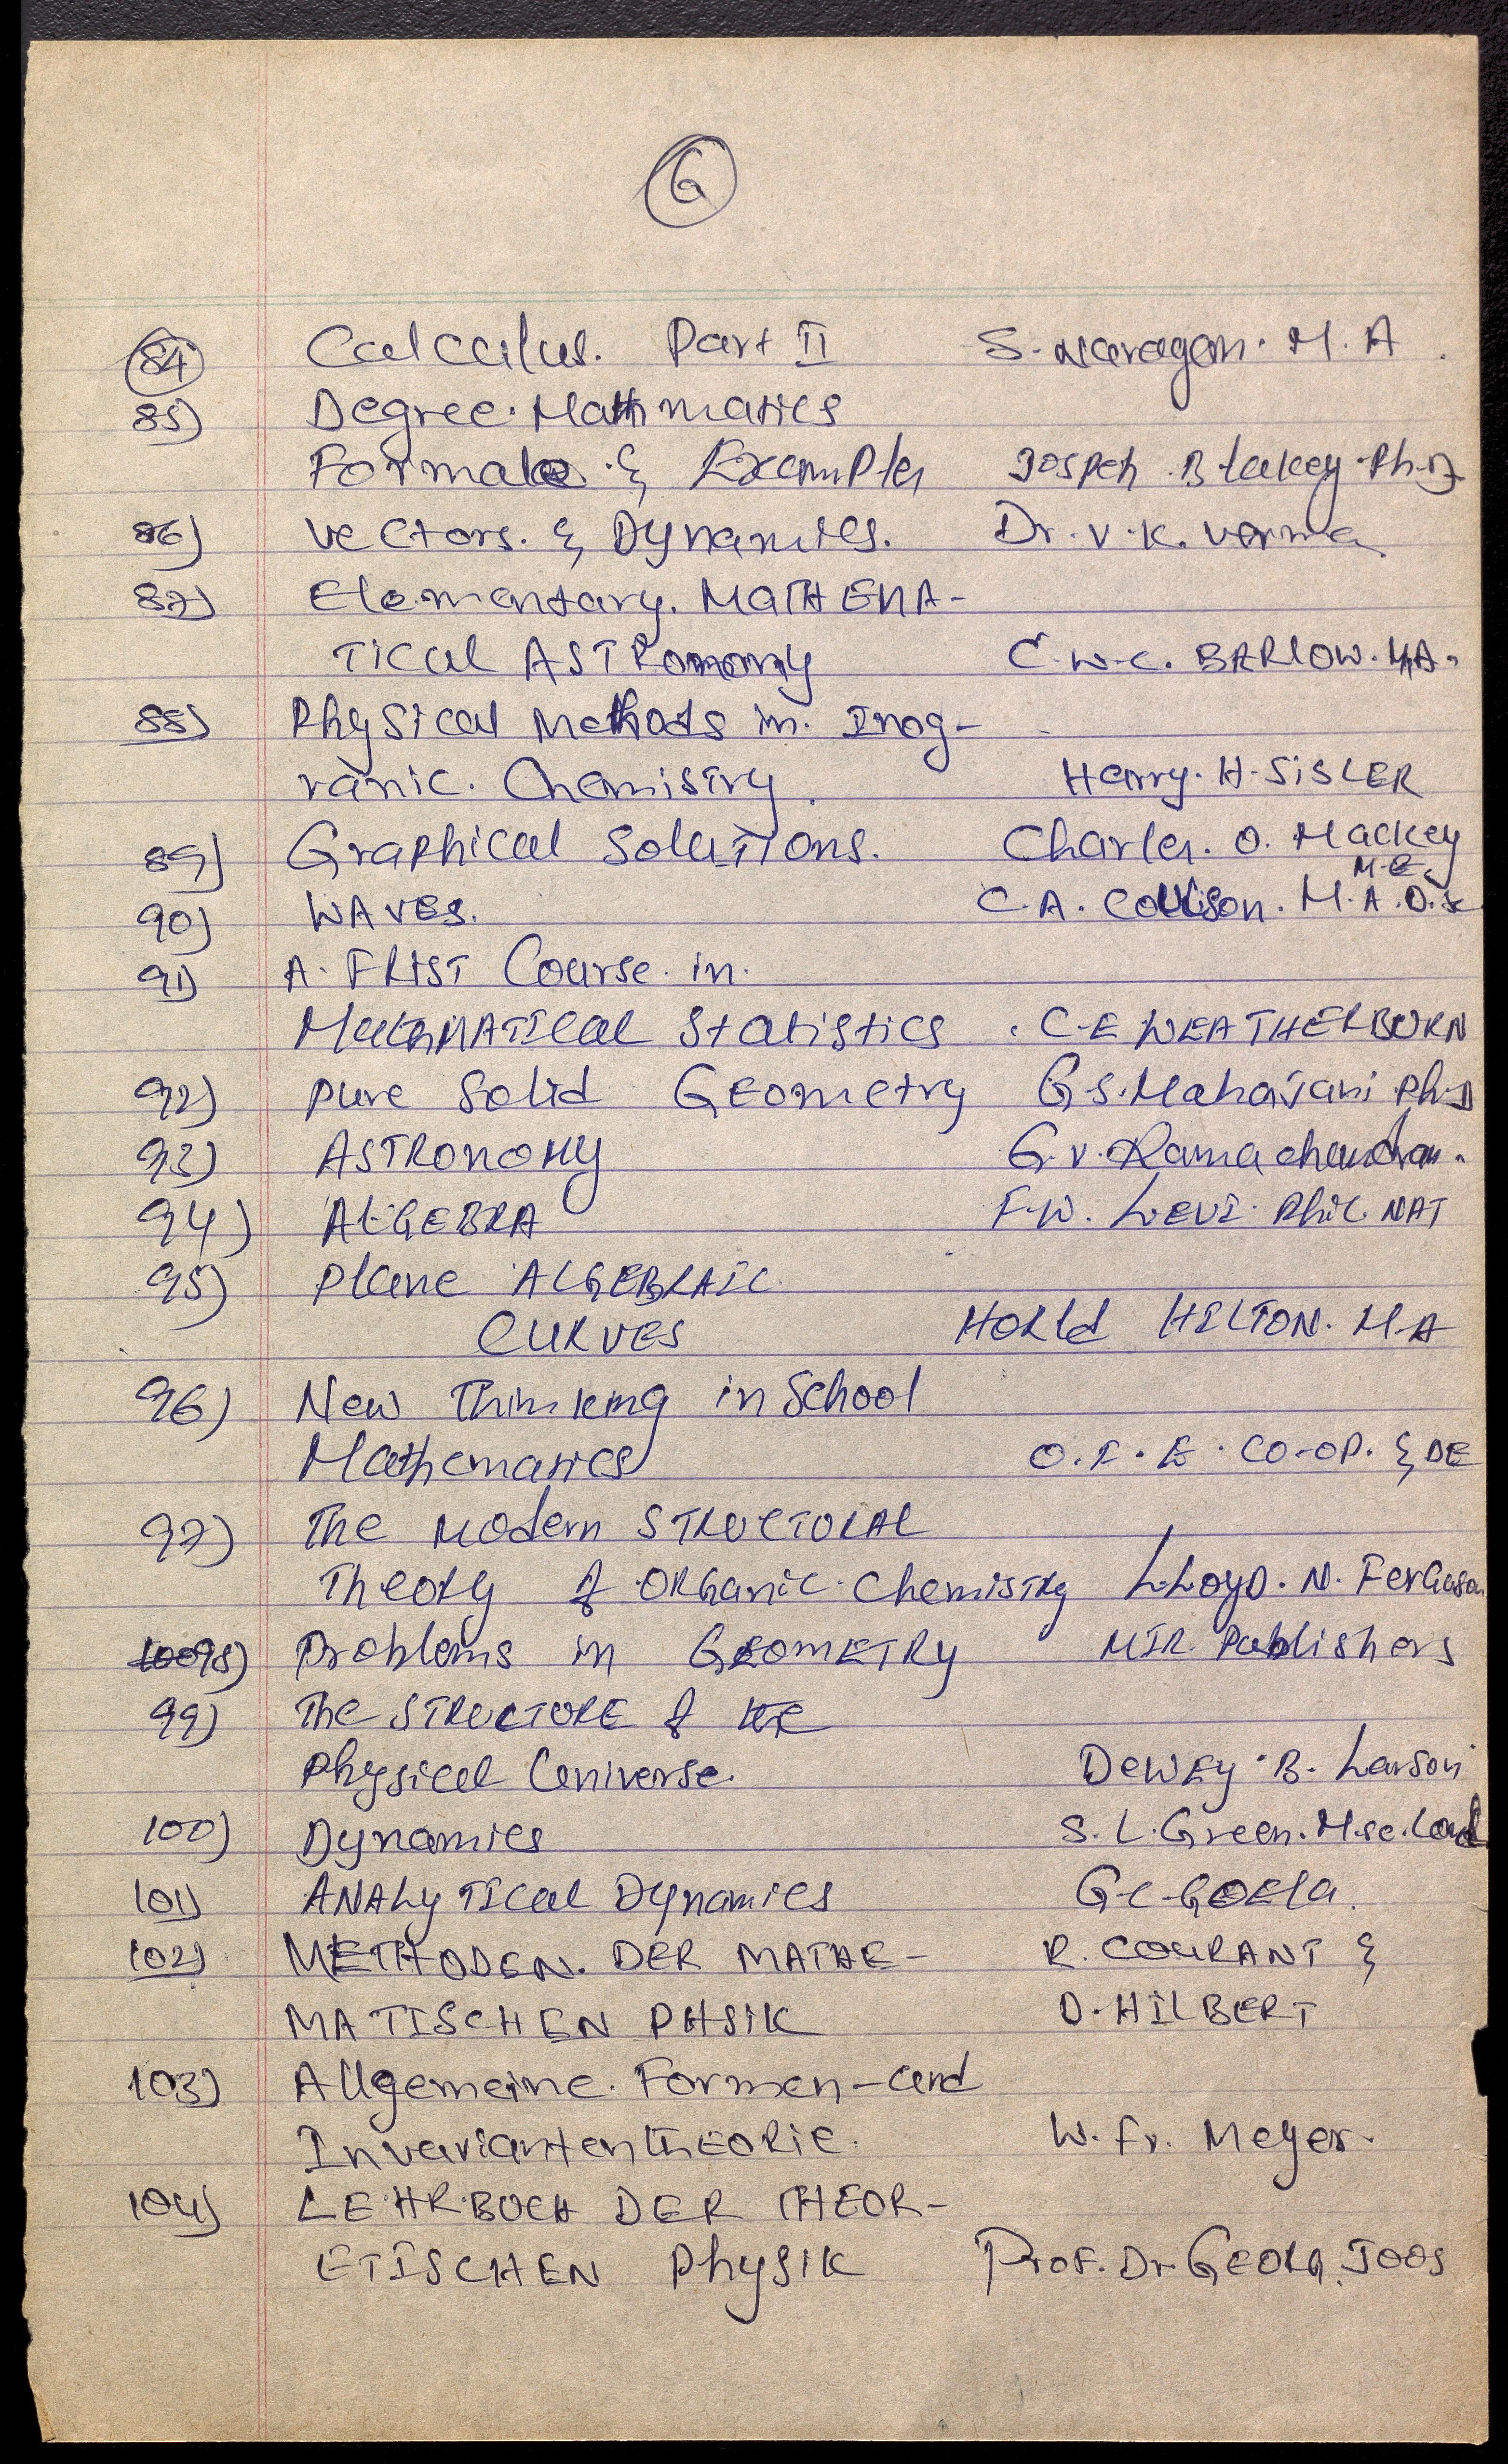 6
84 Calculus. Part II S. Narayan. M. A.
85) Degree. Mathmatics
Formale & Examples Jospeh. Blakey. Ph.D
86) Vectors. & Dynamics. Dr. V. K. Verma
87) Elementary. MATHEMA-
TICAL ASTRonomy C. W. C. BARLOW. M.A.
88) Physical Methods in. Inog-
ranic. Chemistry. Harry. H. SISLER
89) Graphical Solutions. Charles. O. Mackey
M.E.
90) WAVES. C. A. Coulson. M. A. D. Sc
91) A. FRIST Course. in.
MathMATICAL Statistics. C. E WEATHERBURN
92) Pure Solid Geometry G. S. Mahajani Ph.D
93) ASTRONOMY G. V. Ramachandran.
94) ALGEBRA F. W. LEVI. Phil. NAT
95) Plane ALGEBRAIC
CURVES HORLd HILTON. M.A
96) New Thinking in School
Mathematics O. E. E. CO-OP. & DE
97) The Modern STRUCTURAL
Theory of ORGANIC. Chemistry LLoyD. N. Ferguson
98) Problems in GEOMETRY MIR Publishers
99) The STRUCTURE of the
Physical Universe. DEWEY. B. Larson
100) Dynamics S. L. Green. M.sc. Lond
101) ANALYTICAL Dynamics G. C. GOELA.
102) METHODEN. DER MATHE- R. COURANT &
MATISCHEN PHSIK D. HILBERT
103) Allgemeine. Formen-und
InvariantenTHEORIE. W. Fr. Meyer.
104) LEHRBUCH DER THEOR-
ETISCHEN PhySIK Prof. Dr. GEORG. JOOS